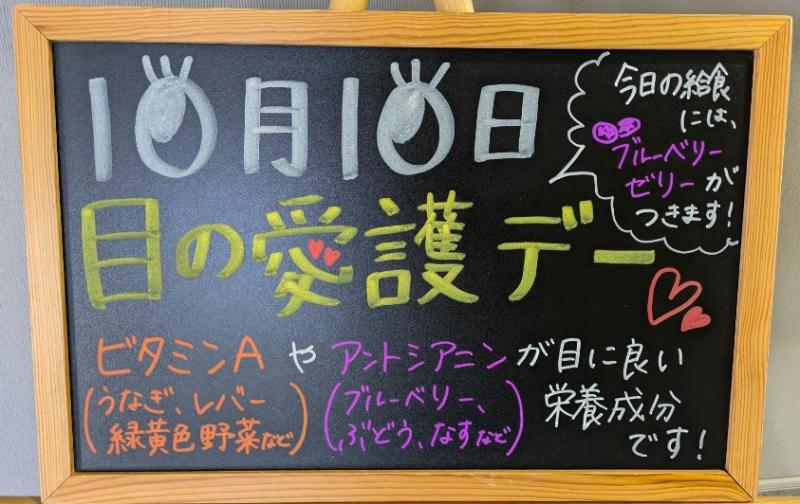 10月10日
目の愛護デー
今日の給食
には、
ブルーベリー
ゼリーが
つきます!
ビタミンA や アントシアニン が目に良い
(うなぎ、レバー (ブルーベリー、 栄養成分
緑黄色野菜など) ぶどう、なすなど) です!